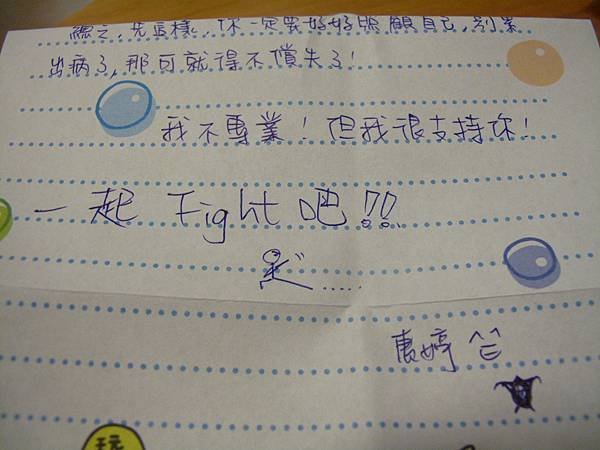 總之,先這樣,你一定要好好照顧自己,別累
出病了,那可就得不償失了!
我不專業!但我很支持你!
一起 Fight 吧!!
惠婷
玩